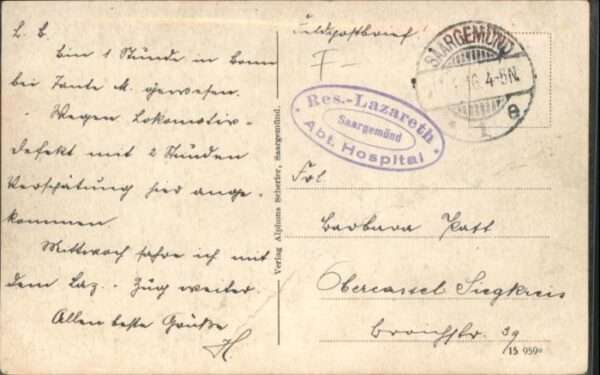 L. B.
Bin 1 Stunde in Bonn
bei Tante M. gewesen.
Wegen Lokomotiv-
defekt mit 2 Stunden
Verspätung hier ange-
kommen.
Mittwoch fahre ich mit
dem Laz.-Zug weiter.
Allen beste Grüße
H
Verlag Alphons Scherfer, Saargemünd.
Feldpostbrief!
SAARGEMÜND
16. 4-5N.
1 e
Res.-Lazareth
Saargemünd
Abt. Hospital
Frl.
Barbara Patt
Obercassel Siegkreis
Broichstr. 39
15 959